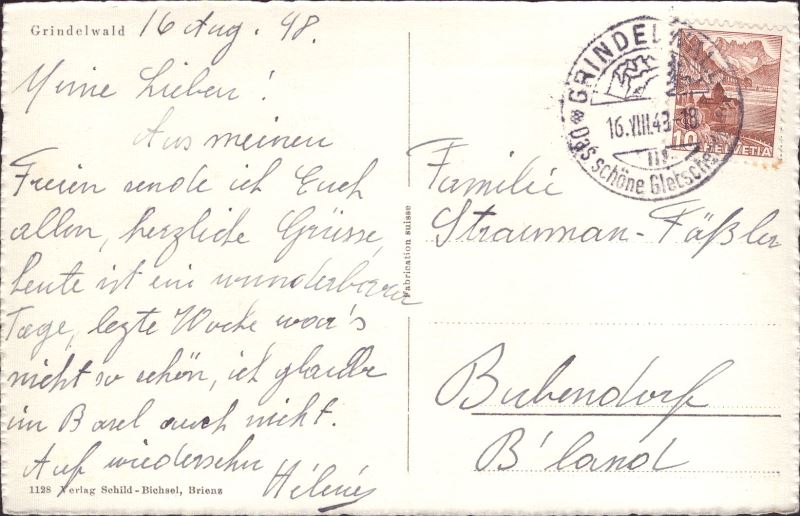 Grindelwald 16 Aug. 48.
Meine Lieben!
Aus meinen
Ferien sende ich Euch
allen, herzliche Grüsse,
heute ist ein wunderbarer
Tage, lezte Woche war's
nicht so schön, ich glaube
im Basel auch nicht.
Auf wiedersehn
Hélène
1128 Verlag Schild-Bichsel, Brienz
Fabrication suisse
GRINDELWALD
16.VIII.43-18
Das schöne Gletscher
10 HELVETIA
Familie
Strauman-Fäßler
Bubendorf
B'land